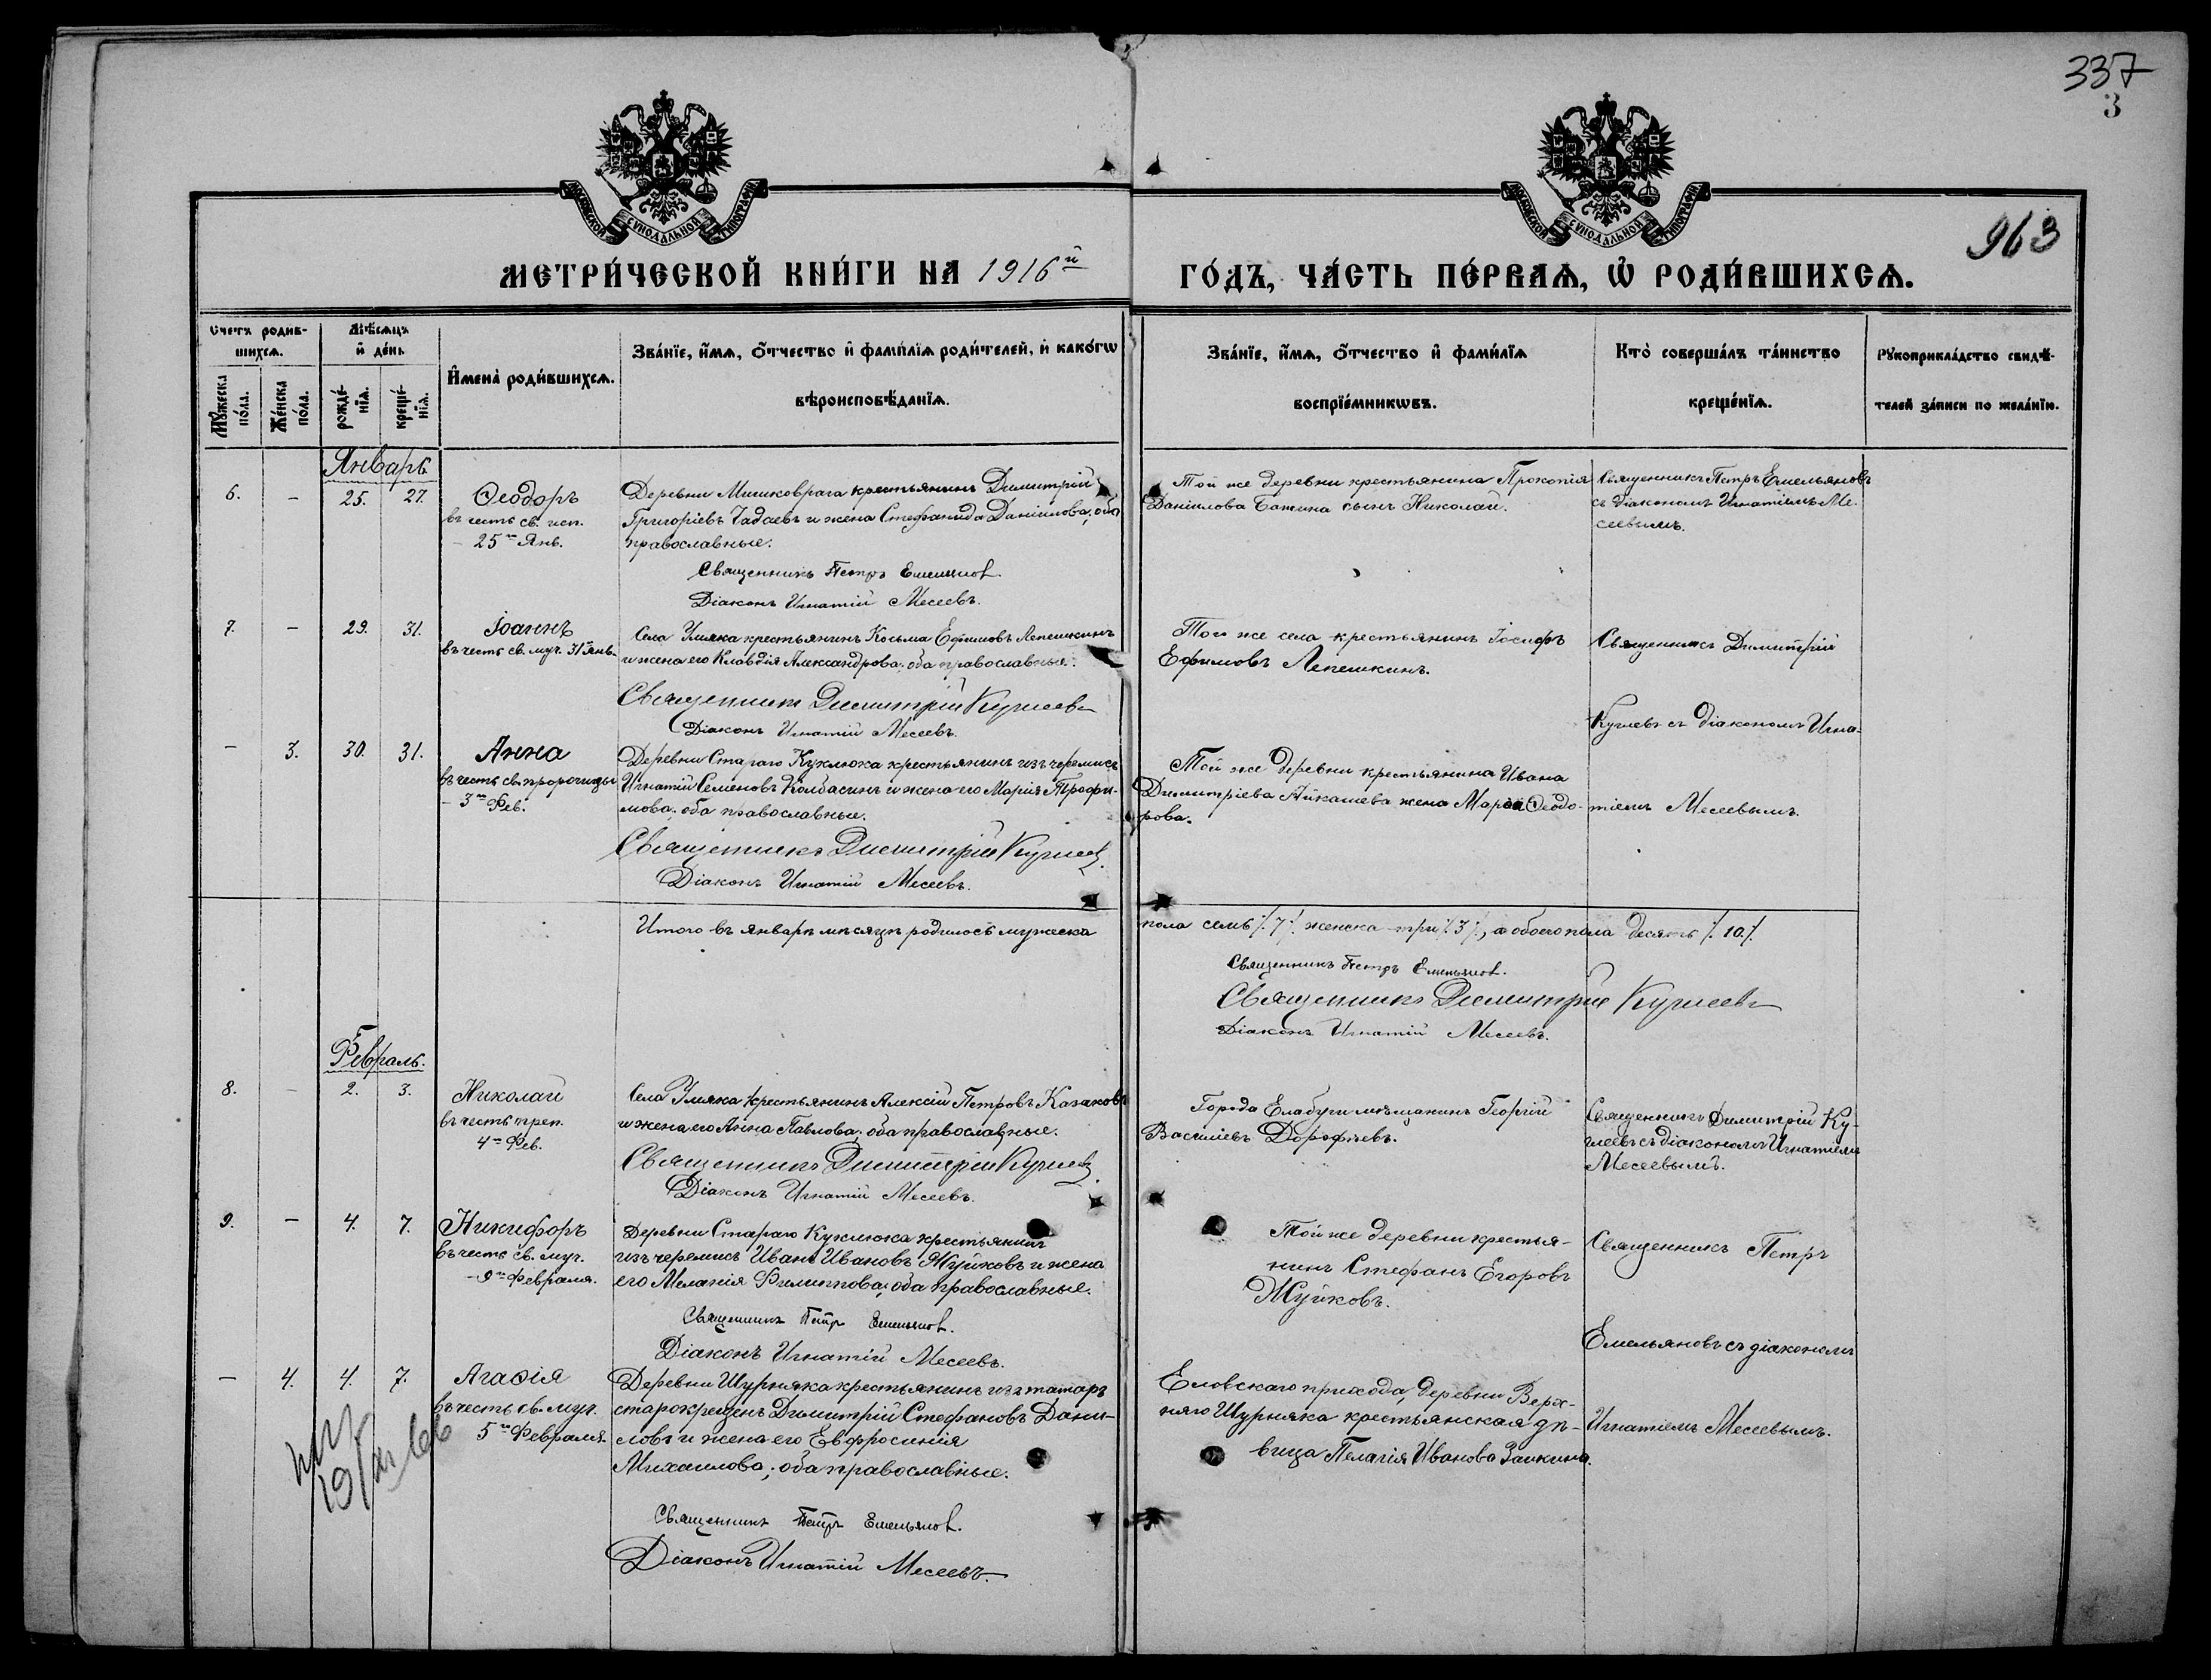 337
3
963
МОСКОВСКОЙ СѴНОДАЛЬНОЙ ТИПОГРАФІИ
МОСКОВСКОЙ СѴНОДАЛЬНОЙ ТИПОГРАФІИ
МЕТРИ́ЧЕСКОЙ КНИ́ГИ НА 1916й
ГО́ДЪ, ЧА́СТЬ ПЕ́РВАѦ, Ѡ҆ РОДИ́ВШИХСѦ.
Счетъ родив-
шихсѧ.
Мꙋжеска по́ла.
Же́нска по́ла.
Мѣ́сѧцъ
и҆ де́нь
рожде́-
нїѧ.
креще́-
нїѧ.
И҆мена̀ роди́вшихсѧ.
Зва́нїе, и҆́мѧ, ѻ҆́тчество и҆ фами́лїѧ роди́телей, и҆ како́гѡ
вѣроисповѣ́данїѧ.
Зва́нїе, и҆́мѧ, ѻ҆́тчество и҆ фами́лїѧ
воспрїе́мникѡвъ.
Кто̀ соверша́лъ та́инство
креще́нїѧ.
Рꙋкоприкла́дство свидѣ́-
телей за́писи по жела́нїю.
Январь
6. - 25. 27.
Ѳеодоръ
въ честь св. исп.
- 25го Янв.
Деревни Мишковрага крестьянинъ Димитрій
Григоріевъ Чадаевъ и жена Стефанида Даніилова, оба
православные.
Священникъ Петръ Емельянов.
Діаконъ Игнатій Месеевъ.
Той же деревни крестьянина Прокопія
Даніилова Бажина сынъ Николай.
Священникъ Петръ Емельяновъ
съ діакономъ Игнатіемъ Ме-
сеевымъ.
7. - 29. 31.
Іоаннъ
въ честь св. муч. 31го Янв.
Села Умяка крестьянинъ Косьма Ефимовъ Лепешкинъ
и жена его Клавдія Александрова; оба православные.
Священникъ Димитрій Кузнеевъ
Діаконъ Игнатій Месеевъ.
Того же села крестьянинъ Іосифъ
Ефимовъ Лепешкинъ.
Священникъ Димитрій
- 3. 30. 31.
Анна
въ честь св. пророчицы
- 3го Фев.
Деревни Стараго Куклюка крестьянинъ изъ черемисъ
Игнатій Семеновъ Колбасинъ и жена его Марія Трофи-
мова; оба православные.
Священникъ Димитрій
Діаконъ Игнатій Месеевъ.
Той же деревни крестьянина Ивана
Димитріева Айкашева жена Марія Ѳеодо-
рова.
съ діакономъ Игна-
тіемъ Месеевымъ.
Итого въ январѣ мѣсяцѣ родилось мужеска
пола семь /.7./. женска три /.3./, а обоего пола десять /.10./.
Священникъ Петръ Емельянов.
Священникъ Димитрій
Діаконъ Игнатій Месеевъ.
Февраль.
8. - 2. 3.
Николай
въ честь преп.
4го Фев.
Села Умяка крестьянинъ Алексій Петровъ Казаковъ
и жена его Анна Павлова; оба православные.
Священникъ Димитрій
Діаконъ Игнатій Месеевъ.
Города Елабуги мѣщанинъ Георгій
Василіевъ Дорофѣевъ.
Священникъ Димитрій
съ діакономъ Игнатіемъ
Месеевымъ.
9. - 4. 7.
Никифоръ
въ честь св. муч.
- 9го Февраля.
Деревни Стараго Куклюка крестьянинъ
изъ черемисъ Иванъ Ивановъ Жуйковъ и жена
его Меланія Филиппова; оба православные.
Священникъ Петръ Емельянов.
Діаконъ Игнатій Месеевъ.
Той же деревни крестья-
нинъ Стефанъ Егоровъ
Жуйковъ.
Священникъ Петръ
Емельяновъ съ діакономъ
- 4. 4. 7.
Агаѳія
въ честь св. муч.
5го Февраля.
Деревни Шурняка крестьянинъ изъ татаръ
старокрещенъ Димитрій Стефановъ Дани-
ловъ и жена его Евфросинія
Михаилова; оба православные.
Священникъ Петръ Емельянов.
Діаконъ Игнатій Месеевъ.
Еловскаго прихода, деревни Верх-
няго Шурняка крестьянская дѣ-
вица Пелагія Иванова Заикина.
Игнатіемъ Месеевымъ.